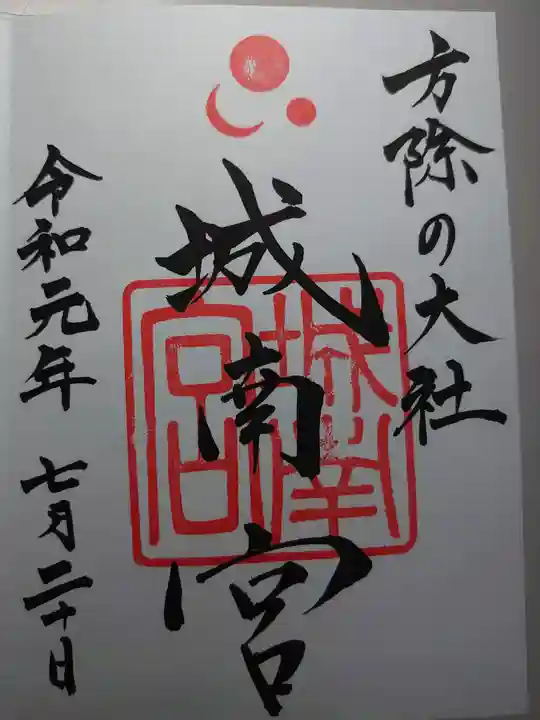 方除の大社
城南宮
城南宮
令和元年 七月二十日